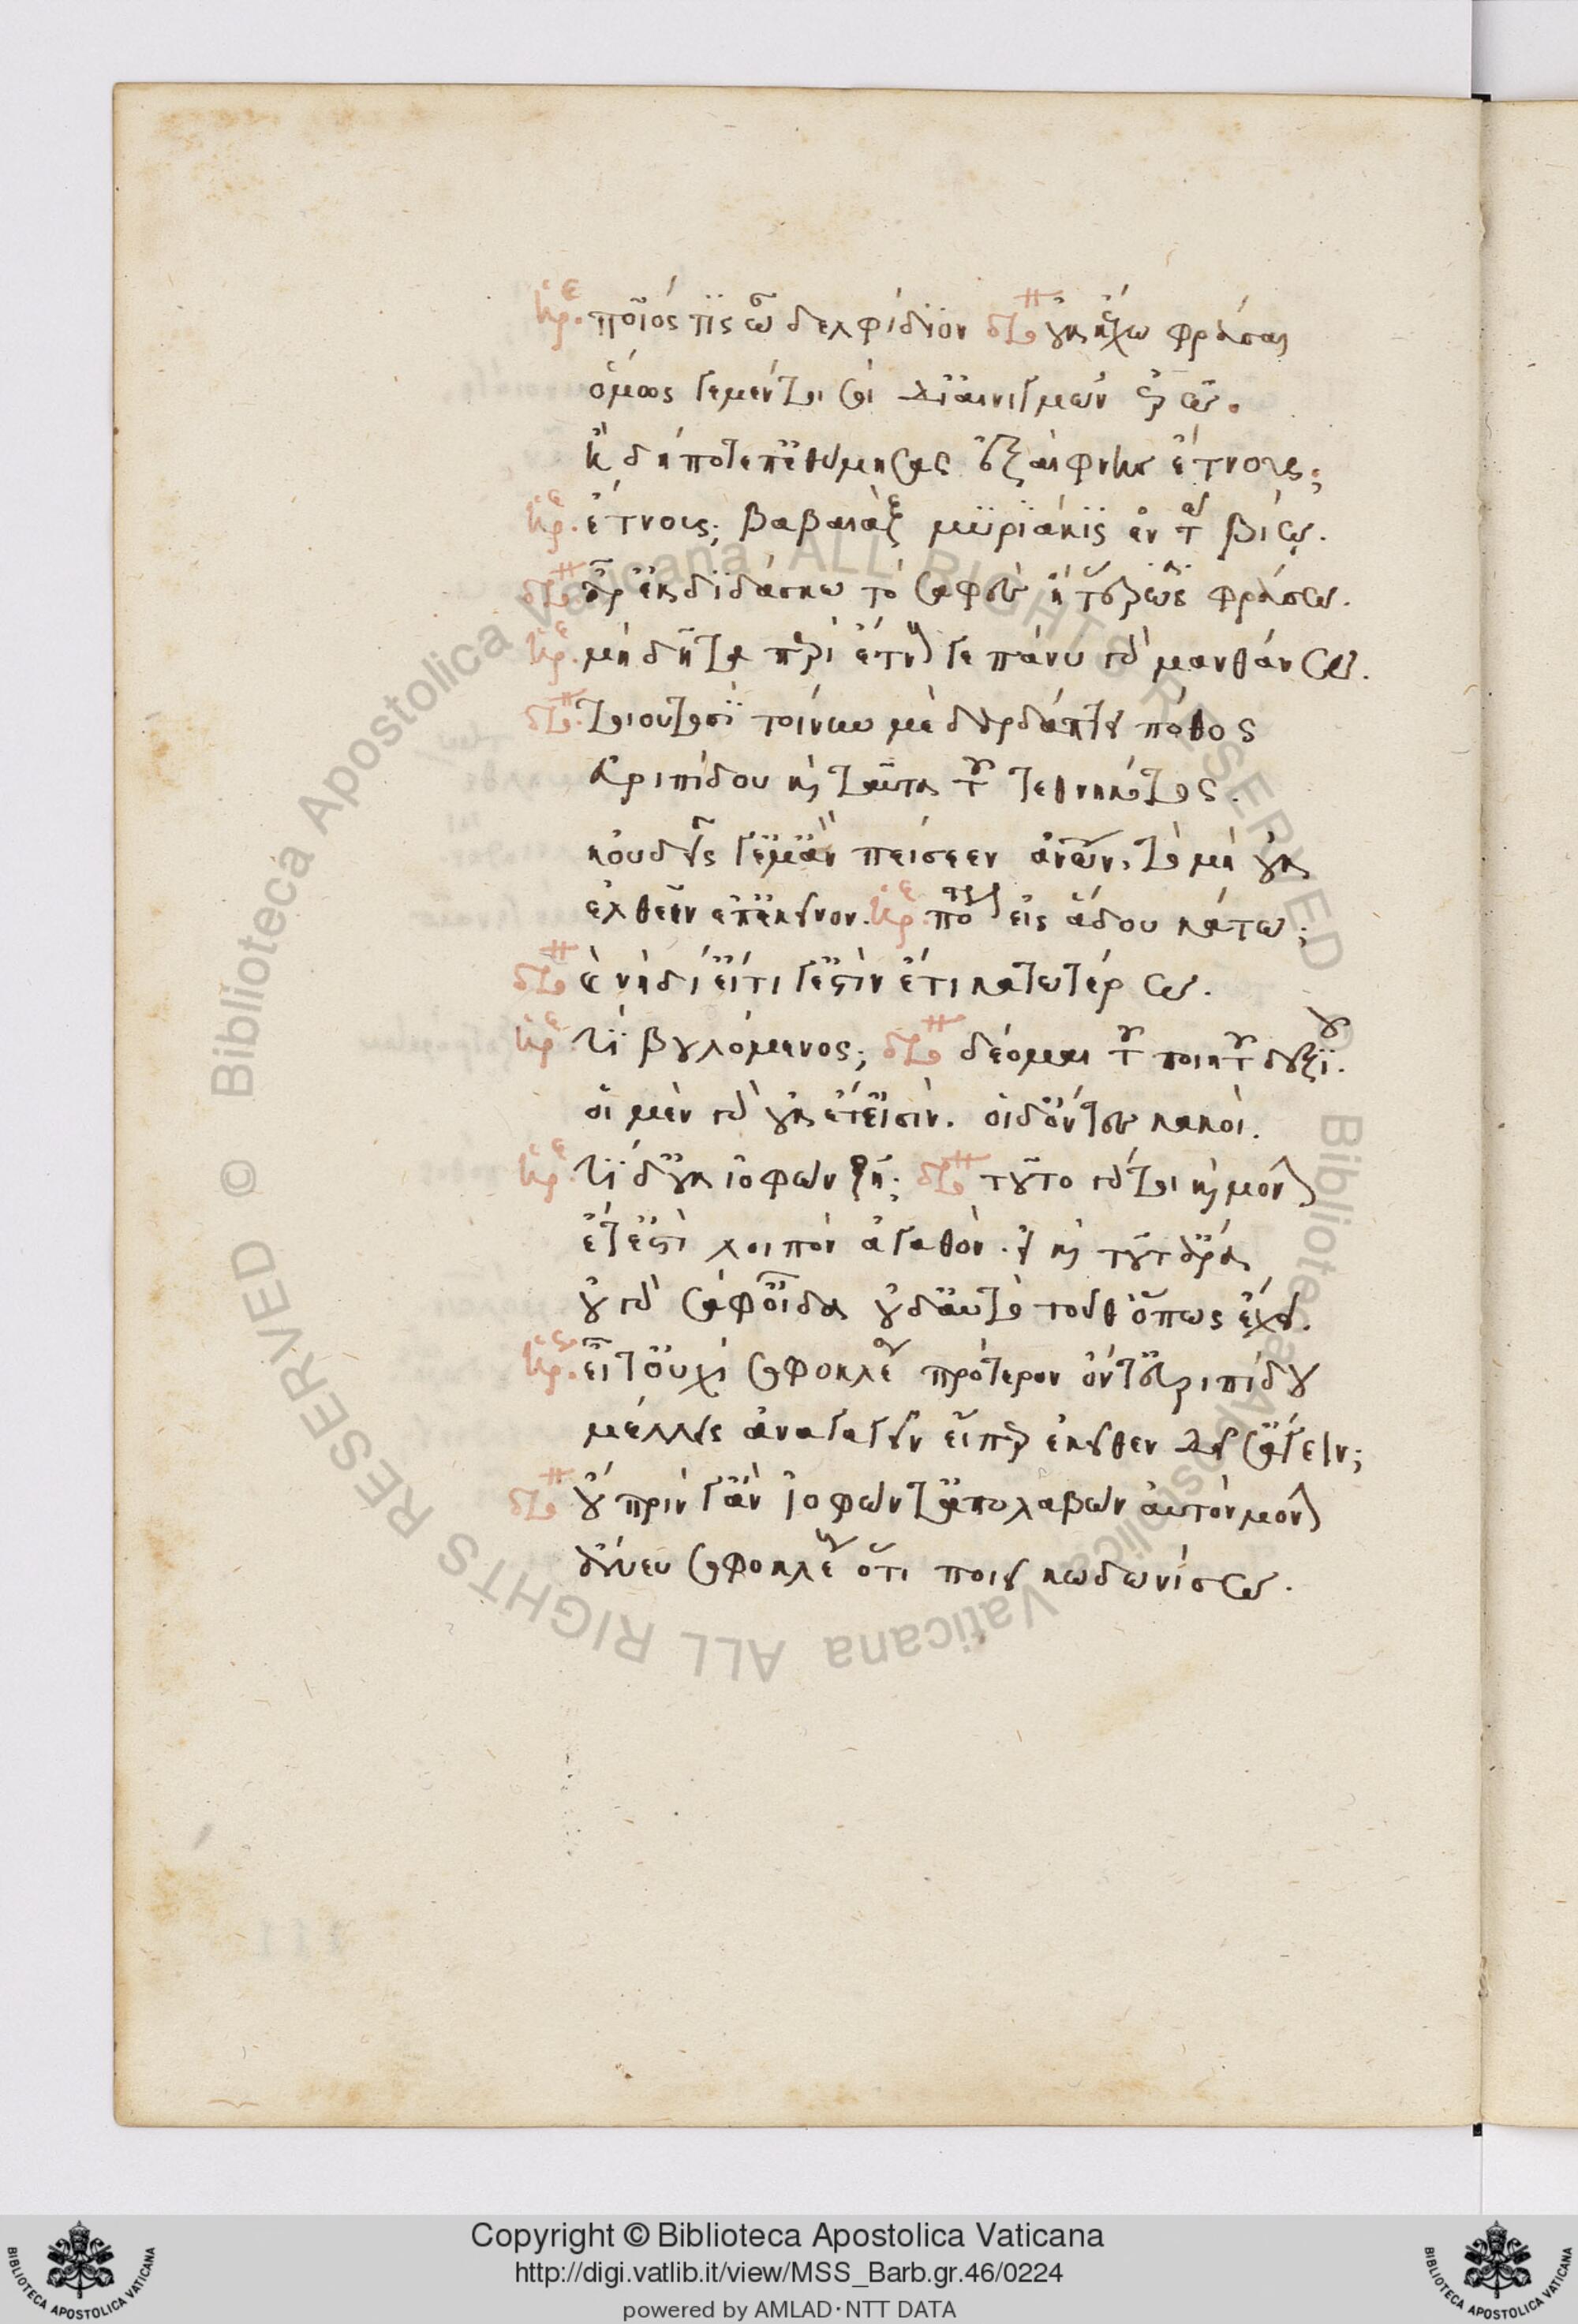 ἡρ. ποῖός τίς ὦ δελφίδιον διο οὐκ ἔχω φράσαι
ὅμως γε μέντοι σοι δι' αἰνιγμῶν ἐρῶ.
ἤδη ποτ' ἐπεθύμησας ἐξαίφνης ἔτνους;
ἡρ. ἔτνους; βαβαιάξ μυριάκις ἐν τῷ βίῳ.
διο ἆρ' ἐκδιδάσκω τὸ σαφὲς ἢ τέρᾳ φράσω.
ἡρ. μὴ δῆτα περὶ ἔτνους γε πάνυ γὰρ μανθάνω.
διο. τοιουτοσὶ τοίνυν με δαρδάπτει πόθος
εὐριπίδου καὶ ταῦτα τοῦ τεθνηκότος.
κοὐδείς γέ μ' ἂν πείσειεν ἀνων, τὸ μὴ οὐκ
ἐλθεῖν ἐπ' ἐκεῖνον. ἡρ. πότερον εἰς ἅδου κάτω;
διο καὶ νὴ δί' εἴ τί γ' ἐστὶν ἔτι κατωτέρω.
ἡρ. τί βουλόμενος; διο δέομαι ποιητοῦ δεξιοῦ.
οἱ μὲν γὰρ οὐκέτ' εἰσίν. οἱ δ' ὄντες κακοί.
ἡρ. τί δ' οὐκ ἰοφῶν ζῇ; διο τοῦτο γάρ τοι καὶ μόνον
ἔτ' ἐστὶ λοιπὸν ἀγαθόν. εἰ καὶ τοῦτ' ἄρα
οὐ γὰρ σάφ' οἶδα οὐδ' αὐτὸ τοῦθ' ὅπως ἔχει.
ἡρ. εἶτ' οὐχὶ σοφοκλέα πρότερον ὄντ' εὐριπίδου
μέλλεις ἀναγαγεῖν εἴπερ ἐκεῖθεν δεῖ σ' ἄγειν;
διο οὐ πρίν γ' ἂν ἰοφῶντ' ἀπολαβὼν αὐτὸν μόνον
ἄνευ σοφοκλέους ὅτι ποιεῖ κωδωνίσω.
© Biblioteca Apostolica Vaticana ALL RIGHTS RESERVED
Biblioteca Apostolica Vaticana ALL RIGHTS RESERVED
Copyright © Biblioteca Apostolica Vaticana
http://digi.vatlib.it/view/MSS_Barb.gr.46/0224
powered by AMLAD·NTT DATA
BIBLIOTECA APOSTOLICA VATICANA
BIBLIOTECA APOSTOLICA VATICANA